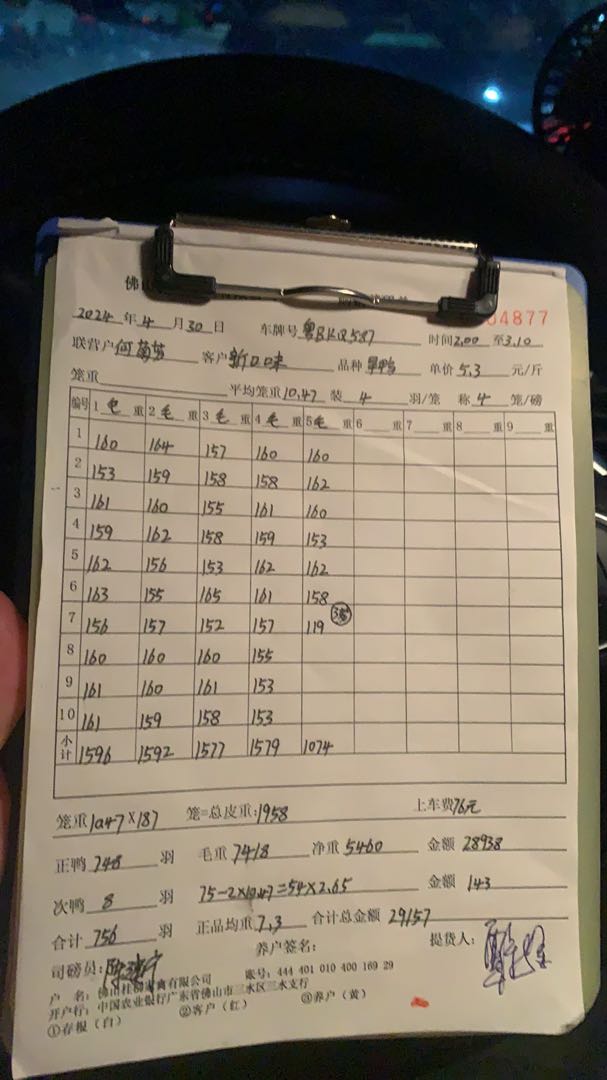 佛山
04877
2024 年 4 月 30 日 车牌号 粤BKQ587 时间 2.00 至 3.10
联营户 何 客户 新口味 品种 旱鸭 单价 5.3 元/斤
笼重 平均笼重 10.47 装 4 羽/笼 称 4 笼/磅
编号 1 毛 重 2 毛 重 3 毛 重 4 毛 重 5 毛 重 6 重 7 重 8 重 9 重
1 160 164 157 160 160
2 153 159 158 158 162
3 161 160 155 161 160
4 159 162 158 159 153
5 162 156 153 162 162
6 163 155 165 161 158
7 156 157 152 157 119
8 160 160 160 155
9 161 160 161 153
10 161 159 158 153
小计 1596 1592 1577 1579 1074
笼重 10.47×187 笼=总皮重: 1958 上车费 76元
正鸭 748 羽 毛重 7418 净重 5460 金额 28938
次鸭 8 羽 75-2×10.47=54×2.65 金额 143
合计 756 羽 正品均重 7.3 合计总金额 29157
司磅员: 养户签名: 提货人:
户 名: 佛山 禽有限公司 账号: 444 401 010 400 169 29
开户行: 中国农业银行广东省佛山市三水区三水支行
①存根(白) ②客户(红) ③养户(黄)